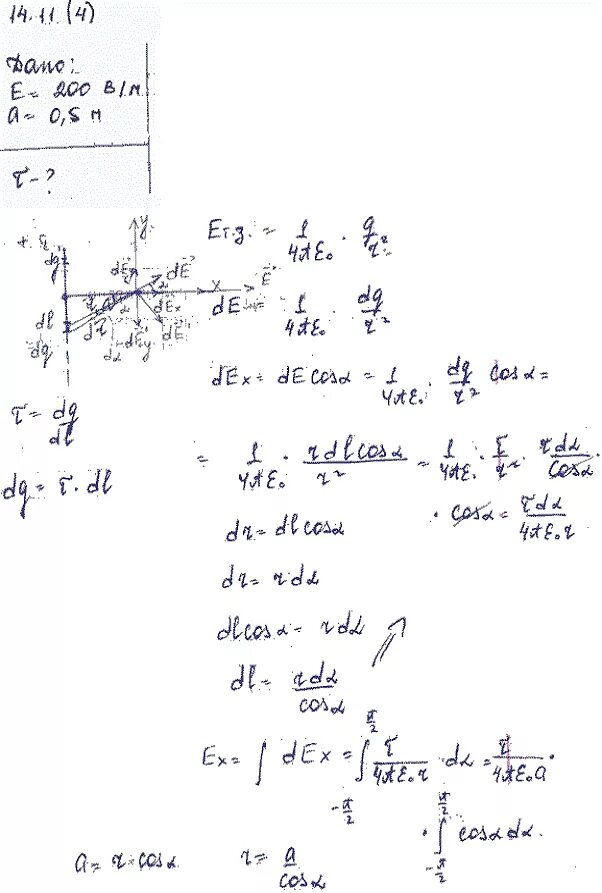 14.11 (4)
Дано:
E = 200 В/м
a = 0,5 м
τ - ?
Eт.з. = 1/4πε₀ · q/r²
y
dE
x
E
dl
dq
dα
dE = 1/4πε₀ · dq/r²
dEx = dE cosα = 1/4πε₀ · dq/r² cosα =
τ = dq/dl
= 1/4πε₀ · τ dl cosα/r² = 1/4πε₀ · τ/r² · r dα/cosα ·
dq = τ · dl
· cosα = τ dα/4πε₀ r
dr = dl cosα
dr = r dα
dl cosα = r dα
dl = r dα/cosα
Ex = ∫ dEx = ∫ -π/2 π/2 τ/4πε₀ r dα = τ/4πε₀ a ·
· ∫ -π/2 π/2 cosα dα.
a = r · cosα r = a/cosα